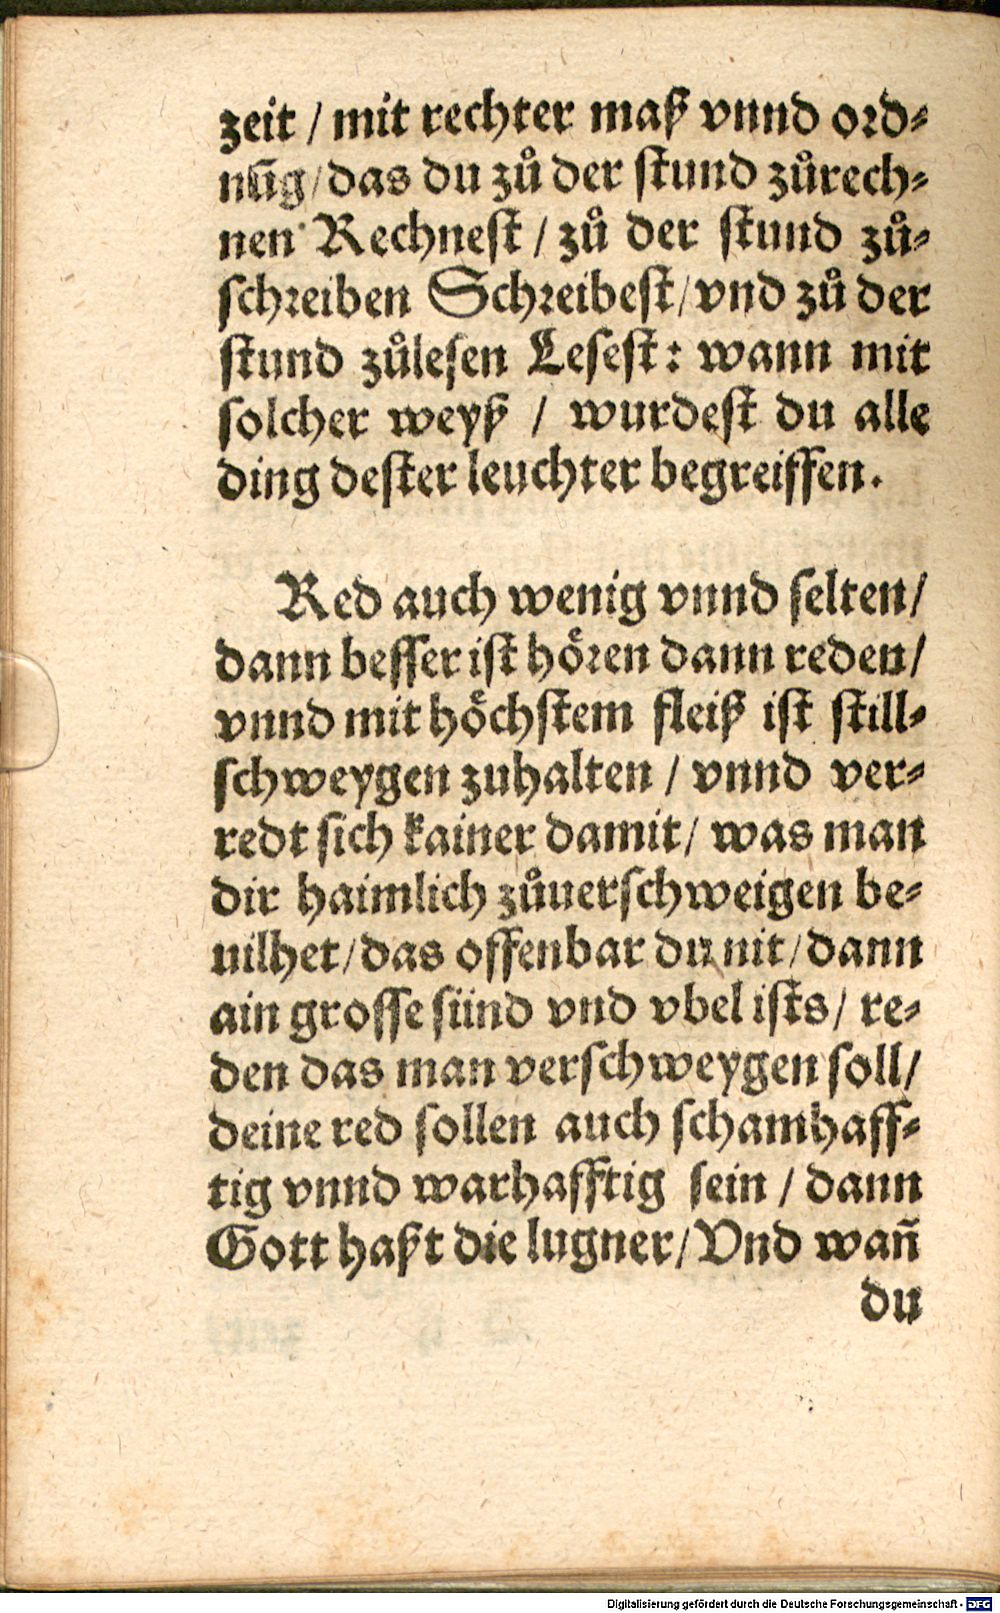 zeit / mit rechter maß vnnd ord⸗
nũg / das du zů der ſtund zůrech⸗
nen Rechneſt / zů der ſtund zů⸗
ſchreiben Schreibeſt / vnd zů der
ſtund zůleſen Leſeſt: wann mit
ſolcher weyß / wurdeſt du alle
ding deſter leuchter begreiffen.
Red auch wenig vnnd ſelten /
dann beſſer iſt hören dann reden /
vnnd mit höchſtem fleiß iſt ſtill⸗
ſchweygen zuhalten / vnnd ver⸗
redt ſich kainer damit / was man
dir haimlich zůuerſchweigen be⸗
uilhet / das offenbar du nit / dann
ain groſſe ſünd vnd vbel iſts / re⸗
den das man verſchweygen ſoll /
deine red ſollen auch ſchamhaff⸗
tig vnnd warhafftig ſein / dann
Gott haßt die lugner / Vnd wañ
du
Digitalisierung gefördert durch die Deutsche Forschungsgemeinschaft - DFG